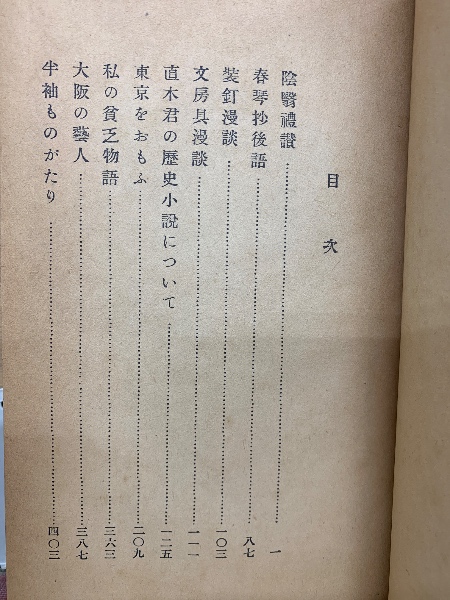 目次
陰翳禮讃 一
春琴抄後語 八七
裝釘漫談 一〇三
文房具漫談 一一一
直木君の歷史小說について 一二五
東京をおもふ 二〇九
私の貧乏物語 三六三
大阪の藝人 三八七
半袖ものがたり 四〇三